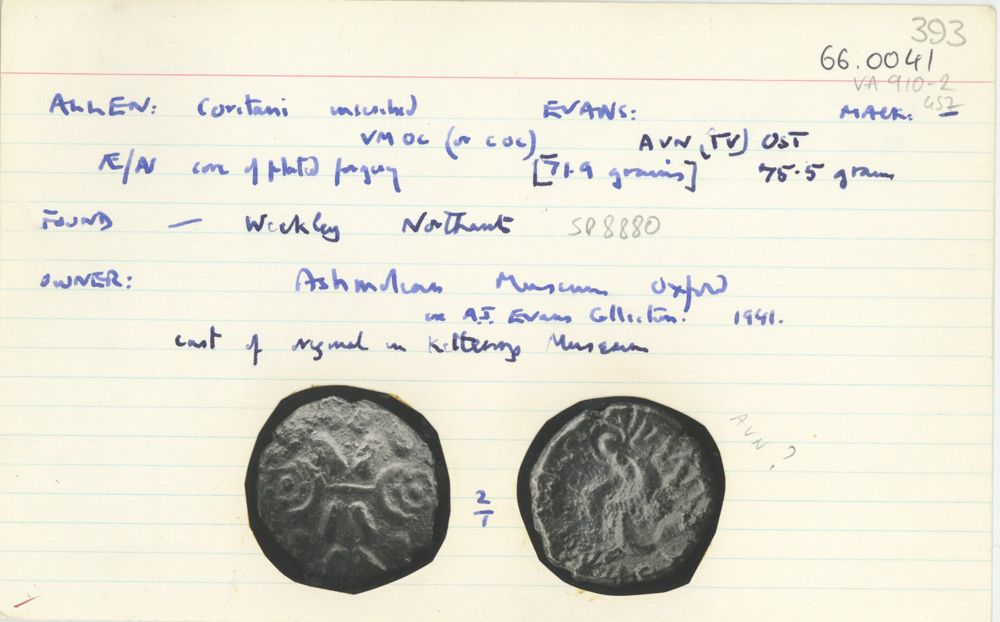 393
66.0041
VA 910-2
ALLEN: Coritani inscribed EVANS: MACK: 457
VM OC (or COC) AVN (TV) OST
Æ/AV core of plated forgery [71.9 grains] 75.5 grains
FOUND — Weekley Northants SP8880
OWNER: Ashmolean Museum Oxford
ex A.J. Evans Collection. 1941.
cast of original in Kettering Museum
AVN. ?
2
7